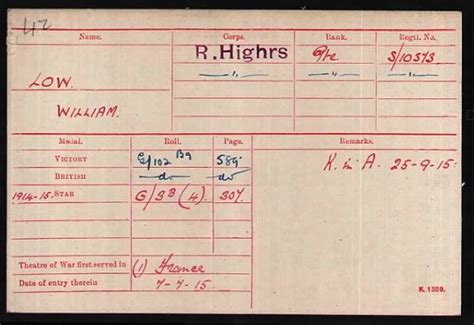 42
Name. Corps. Rank. Regtl. No.
LOW. R. Highrs Pte. S/10573.
WILLIAM. " " "
Medal. Roll. Page. Remarks.
VICTORY G/102 B9 589. K. in A. 25-9-15.
BRITISH do do
1914-15 STAR G/3B (4) 307.
Theatre of War first served in (1) France
Date of entry therein 7-7-15.
K. 1380.